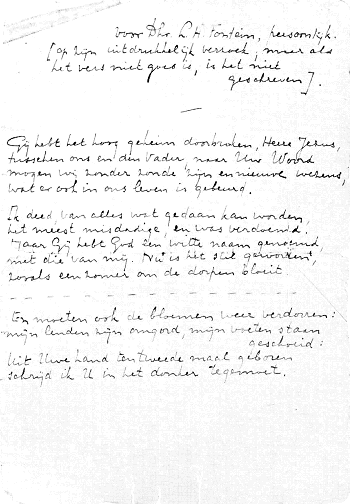 Voor Dhr. L. H. Fontein, persoonlijk.
[op zijn uitdrukkelijk verzoek; maar als
het vers niet goed is, is het niet
geschreven].
Gij hebt het hoog geheim doorbroken, Heere Jezus,
tusschen ons en den Vader; naar Uw Woord
mogen wij zonder zonde zijn en nieuwe wezens,
wat er ook in ons leven is gebeurd.
Ik deed, van alles wat gedaan kan worden,
het meest misdadige, en was verdoemd.
Maar Gij hebt God een witte naam genoemd
met die van mij. Nu is het stil geworden,
zooals een zomer om de dorpen bloeit.
En moeten ook de bloemen weer verdorren:
mijn lenden zijn omgord, mijn voeten staan
geschoeid:
Uit Uwe Hand ten tweede maal geboren
schrijd ik U in het donker tegemoet.